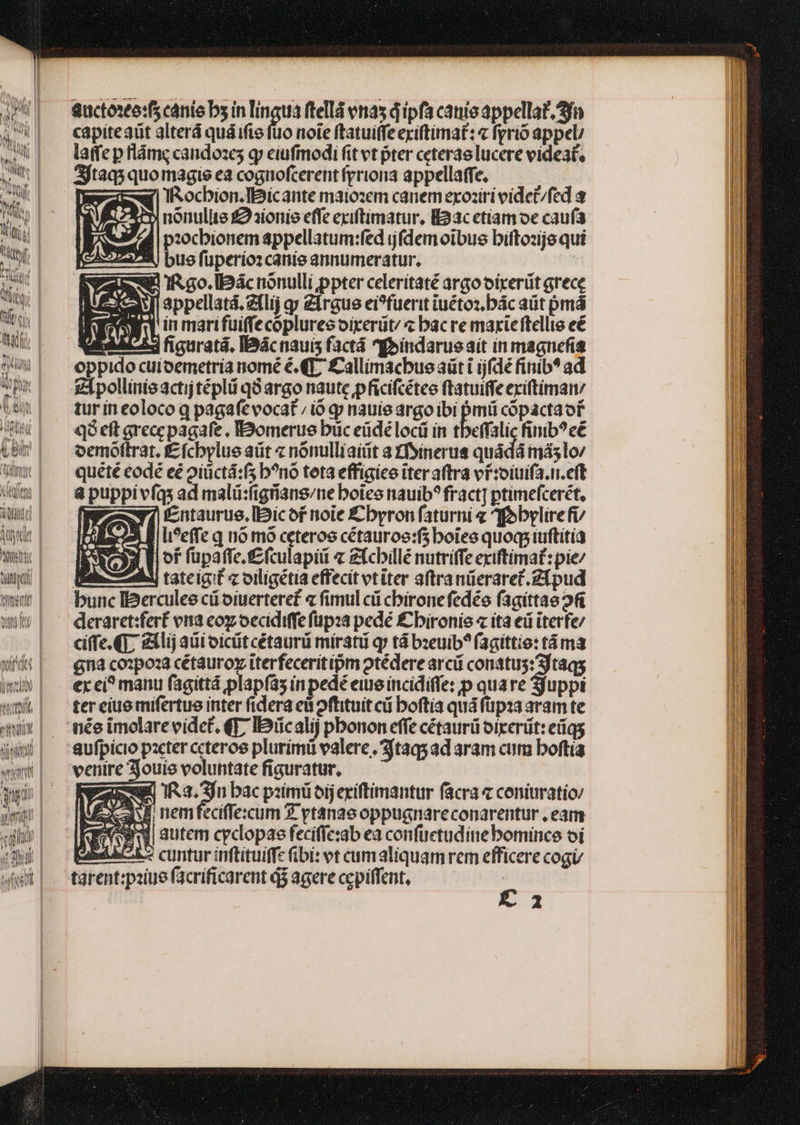 auctores:ſꝫ canis hꝫ in lingua ſtellā vnaꝫ q̃ ipſa canis appellat̃. In
capite aūt alterā quā iſis ſuo noīe ſtatuiſſe exiſtimat̃: ⁊ ſyriō appel⸗
laſſe ꝓ flāmę candores ꝙ eiuſmodi ſit vt p̄ter ceteras lucere videat̃.
Itaqꝫ quo magis ea cognoſcerent ſyriona appellaſſe.
Rochion. Hic ante maiorem canem exoꝛiri videt̃/ſed a
nōnullis Orionis eſſe exiſtimatur. Hac etiam de cauſa
prochionem appellatum: ſed ijſdem oībus hiſtorijs qui
bus ſuperior canis annumeratur.
Rgo. Hāc nōnulli ꝓpter celeritatē argo dixerūt grece
appellatā. Alij ꝙ Argus eiꝰ fuerit īuētor. hāc aūt pͥmā
in mari fuiſſe cōplures dixerūt/ ⁊ hac re maxīe ſtellis eē
figuratā. Hāc nauis factā Pindarus ait in magneſia
oppido cui demetria nomē ē. ¶ Callimachus aūt ī ijſdē finibꝰ ad
Apollinis actij tēplū qd̓ argo naute ꝓficiſcētes ſtatuiſſe exiſtiman⸗
tur in eo loco q̃ pagaſe vocat̃ / iō ꝙ nauis argo ibi pͥmū cōpacta dr̄
qd̓ eſt grece pagaſe. Homerus hūc eūdē locū in theſſalie finibꝰ eē
demōſtrat. Eſchylus aūt ⁊ nōnulli aiūt a Minerua quādā māſlo⸗
quētē eodē eē ꝯiūctā: ſꝫ hꝰ nō tota effigies īter aſtra vr̄: diuiſa.n.eſt
a puppi vſqꝫ ad malū: ſigñans/ne hoīes nauibꝰ fractꝭ ptimeſcerēt.
Entaurus. Hic dr̄ noīe Chyron ſaturni ⁊ Phylire fi⸗
liꝰ eſſe q̃ nō mō ceteros cētauros: ſꝫ hoīes quoqꝫ iuſtitia
dr̄ ſupaſſe. Eſculapiū ⁊ Achillē nutriſſe exiſtimat̃: pie⸗
tate igit̃ ⁊ diligētia effecit vt īter aſtra nūeraret̃. Apud
hunc Hercules cū diuerteret̃ ⁊ ſimul cū chirone ſedēs ſagittas ꝯſi
deraret: fert̃ vna eoꝝ decidiſſe ſupra pedē Chironis ⁊ ita eū īterfe⸗
ciſſe. ¶ Alij aūt dicūt cētaurū miratū ꝙ tā breuibꝰ ſagittis: tā ma
gna corpora cētauroꝝ īterfecerit ip̄m ꝯtēdere arcū conatus: Itaqꝫ
ex eiꝰ manu ſagittā plapſaꝫ in pedē eius incidiſſe: ꝓ qua re Iuppi
ter eius miſertus inter ſidera eū ꝯſtituit cū hoſtia quā ſupra aram te
nēs īmolare videt̃. ¶ Hūc alij phonon eſſe cētaurū dixerūt: eūqꝫ
auſpicio preter ceteros plurimū valere. Itaqꝫ ad aram cum hoſtia
venire Iouis voluntate figuratur.
Ra. In hac primū dij exiſtimantur ſacra ⁊ coniuratio⸗
nem feciſſe: cum Tytanas oppugnare conarentur. eam
autem cyclopas feciſſe: ab ea conſuetudine homines di
cuntur inſtituiſſe ſibi: vt cum aliquam rem efficere cogi⸗
tarent: prius ſacrificarent qꝫ agere cepiſſent.
E 2